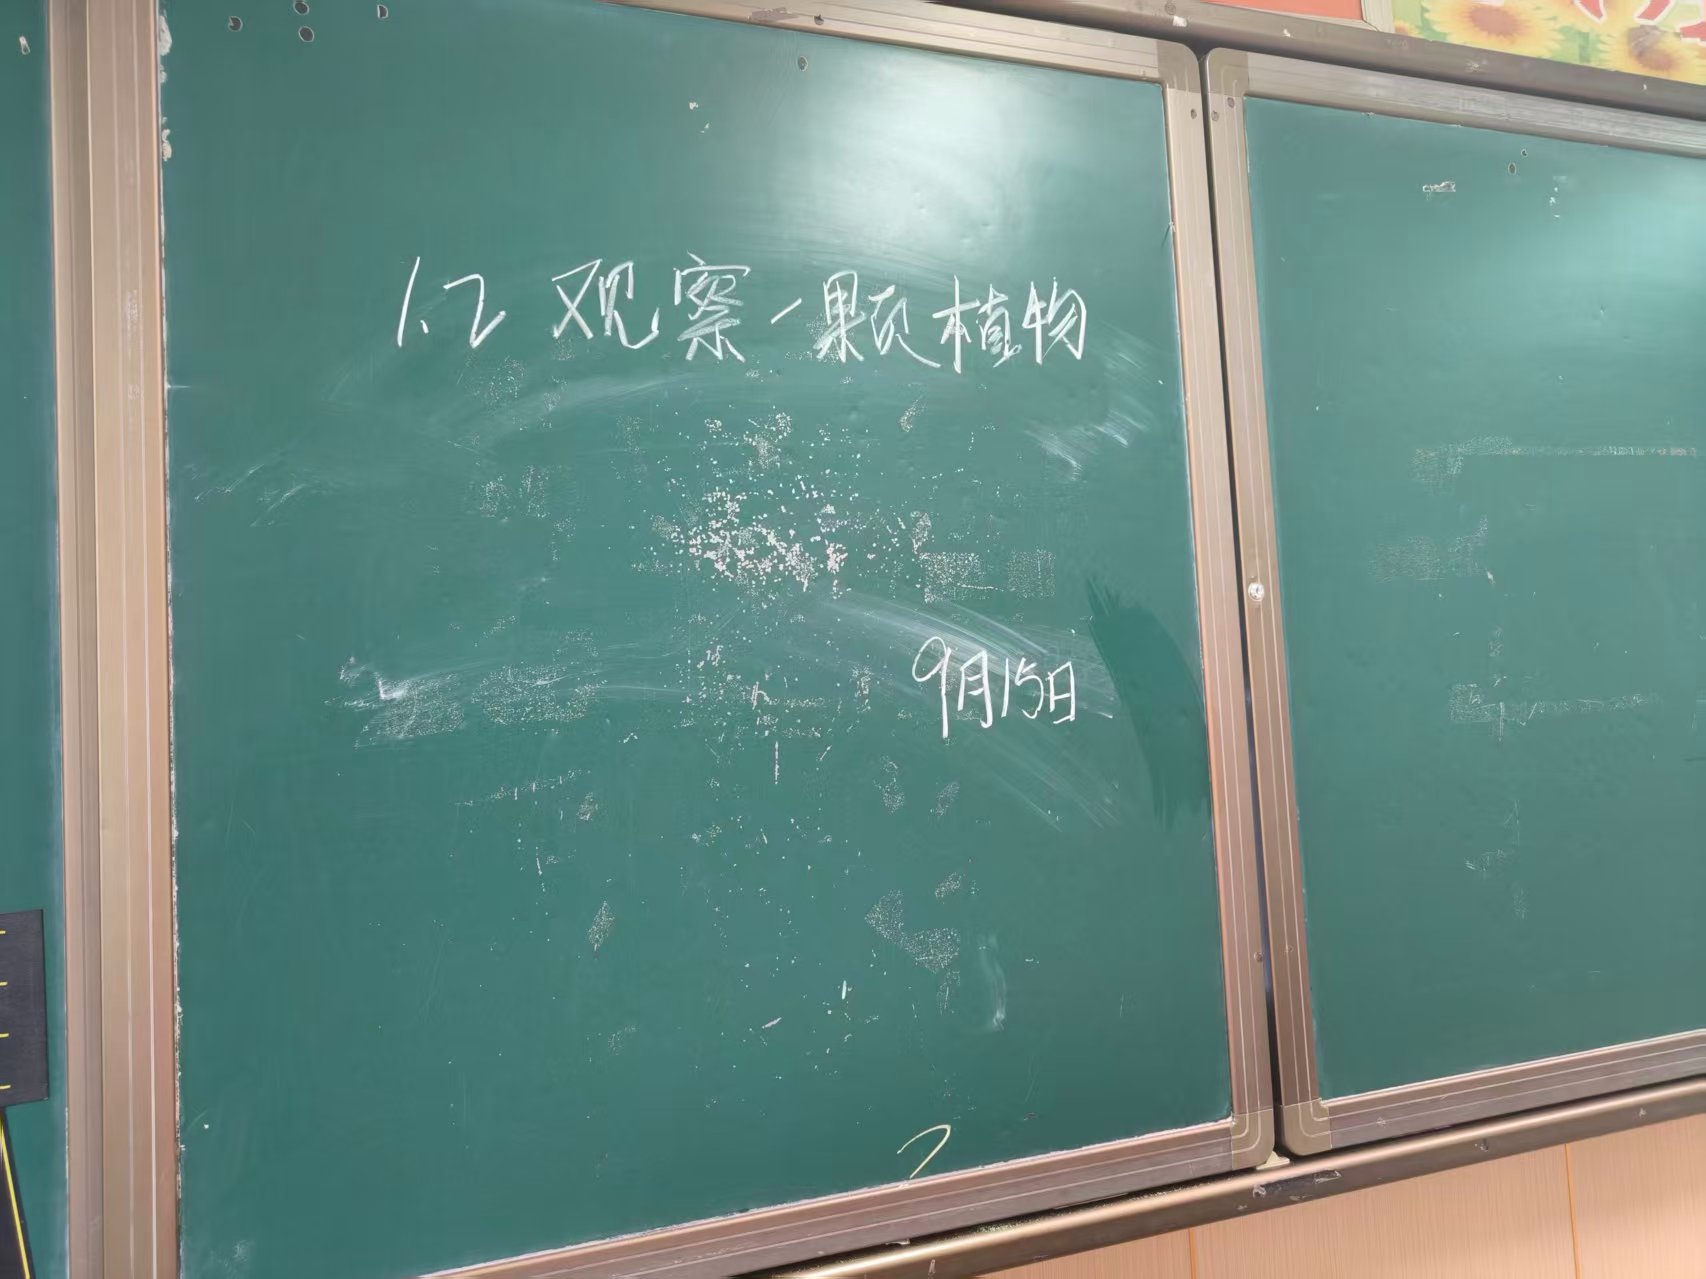 1.2 观察一颗植物
9月15日